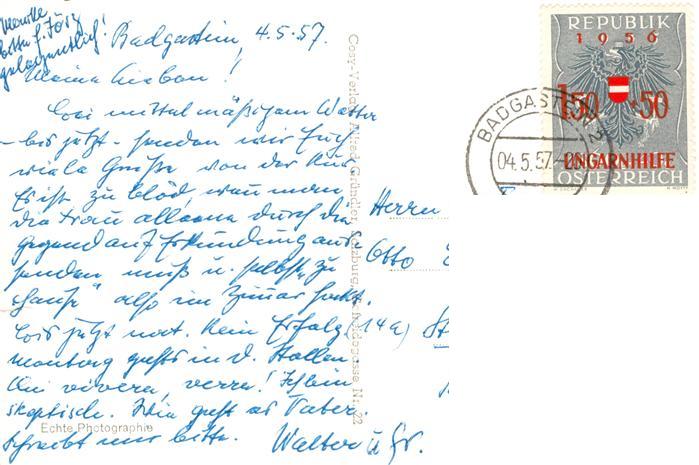 Marke
bitte f. Jörg
gelegentlich!
Badgastein, 4.5.57.
Meine Lieben!
Bei mittelmäßigem Wetter
– bis jetzt – senden wir Euch
viele Grüße von der Kur
Es ist zu blöd, wenn man
die Frau alleine durch die
Gegend auf Erkundung aus-
senden muß u. selbst „zu
Hause“ also im Zimmer hockt.
Bis jetzt noch kein Erfolg
Montag gehts in d. Stollen
Chi vivera, verra! Ich bin
skeptisch. Wie geht es Vater.
Schreibt mir bitte. Walter u
Herrn
Otto
(14a) St
Echte Photographie
Cosy-Verlag Alfred Gründler, Salzburg, Nr. 22
REPUBLIK
1956
1.50 + 50
UNGARNHILFE
ÖSTERREICH
BADGASTEIN 2
04.5.57